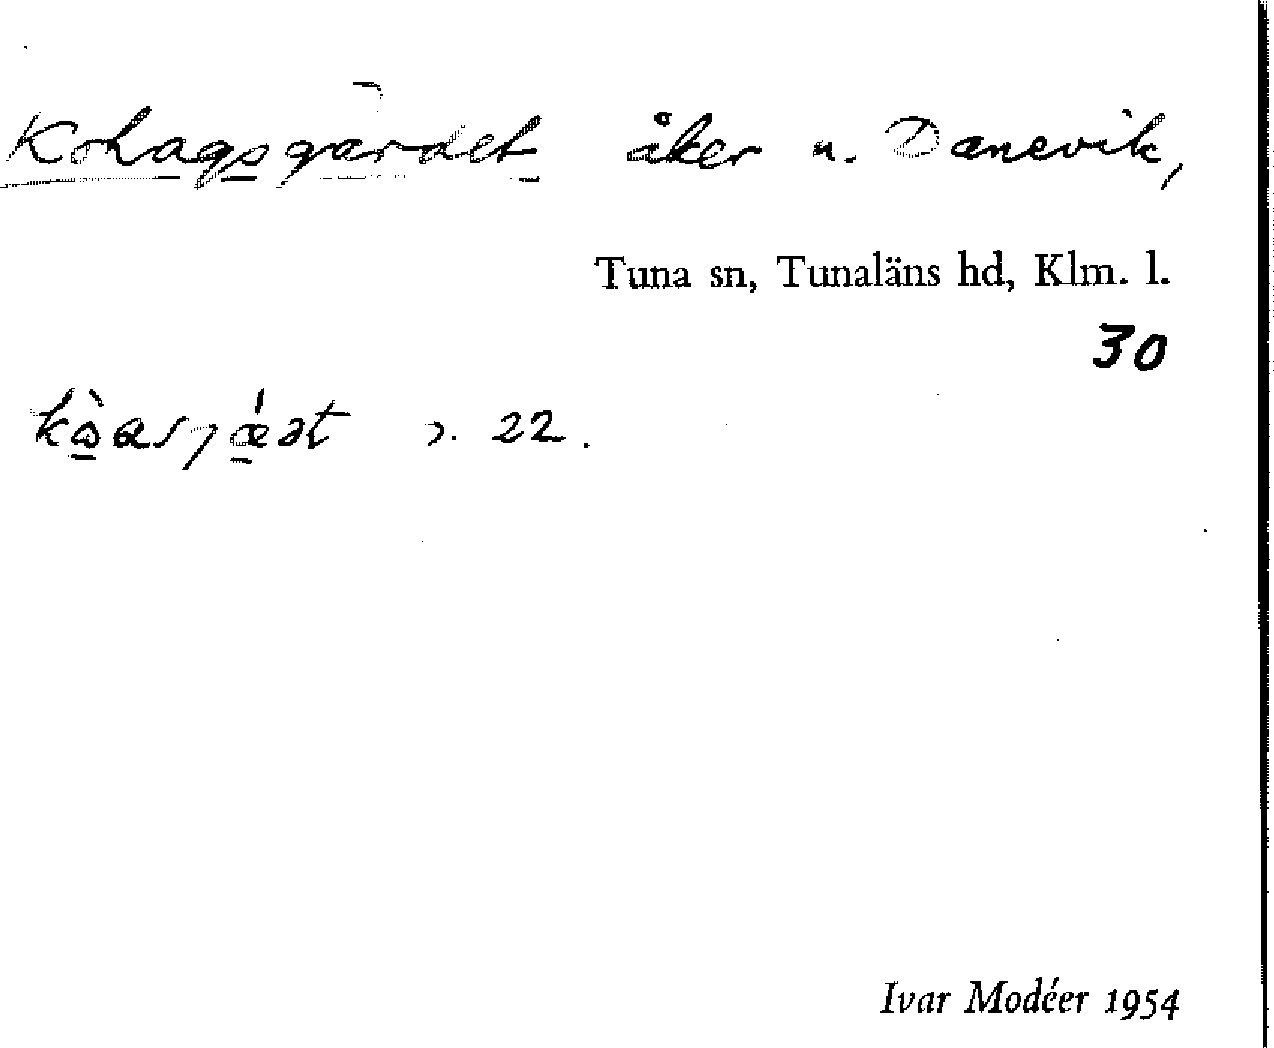 Kohagsgärdet åker u. Danevik,
Tuna sn, Tunaläns hd, Klm. l.
30
22.
Ivar Modéer 1954